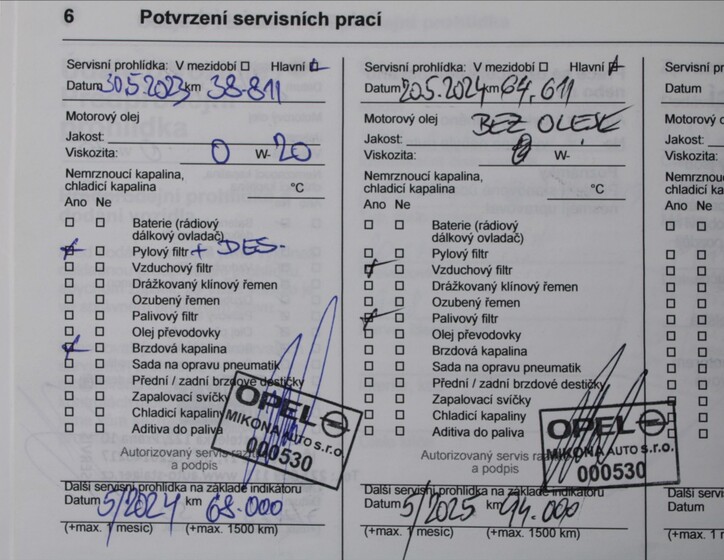 6 Potvrzení servisních prací
Servisní prohlídka: V mezidobí Hlavní
Datum 30.5.2023 km 38.811
Motorový olej
Jakost:
Viskozita: 0 W- 20
Nemrznoucí kapalina,
chladicí kapalina °C
Ano Ne
Baterie (rádiový
dálkový ovladač)
Pylový filtr + DES.
Vzduchový filtr
Drážkovaný klínový řemen
Ozubený řemen
Palivový filtr
Olej převodovky
Brzdová kapalina
Sada na opravu pneumatik
Přední / zadní brzdové destičky
Zapalovací svíčky
Chladicí kapaliny
Aditiva do paliva
OPEL
MIKONA AUTO s.r.o.
000530
Autorizovaný servis
a podpis
Další servisní prohlídka na základě indikátoru
Datum 5/2024 km 68.000
(+max. 1 měsíc) (+max. 1500 km)
Servisní prohlídka: V mezidobí Hlavní
Datum 20.5.2024 km 64.611
Motorový olej BEZ OLEJE
Jakost:
Viskozita: W-
Nemrznoucí kapalina,
chladicí kapalina °C
Ano Ne
Baterie (rádiový
dálkový ovladač)
Pylový filtr
Vzduchový filtr
Drážkovaný klínový řemen
Ozubený řemen
Palivový filtr
Olej převodovky
Brzdová kapalina
Sada na opravu pneumatik
Přední / zadní brzdové destičky
Zapalovací svíčky
Chladicí kapaliny
Aditiva do paliva
OPEL
MIKONA AUTO s.r.o.
000530
Autorizovaný servis
a podpis
Další servisní prohlídka na základě indikátoru
Datum 5/2025 km 94.000
(+max. 1 měsíc) (+max. 1500 km)
Servisní pro
Datum
Motorový o
Jakost:
Viskozita:
Nemrznou
chladicí ka
Ano Ne
Další servis
Datum
(+max. 1 m